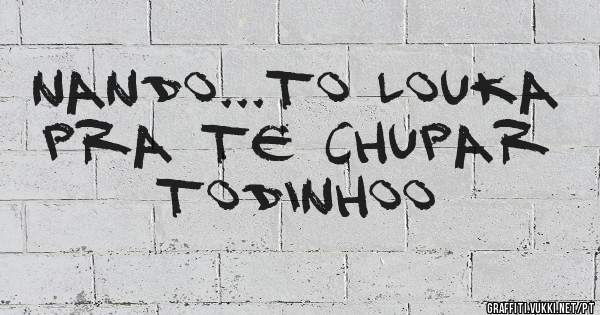 NANDO...TO LOUKA
PRA TE CHUPAR
TODINHOO
GRAFFITI.VUKKI.NET/PT